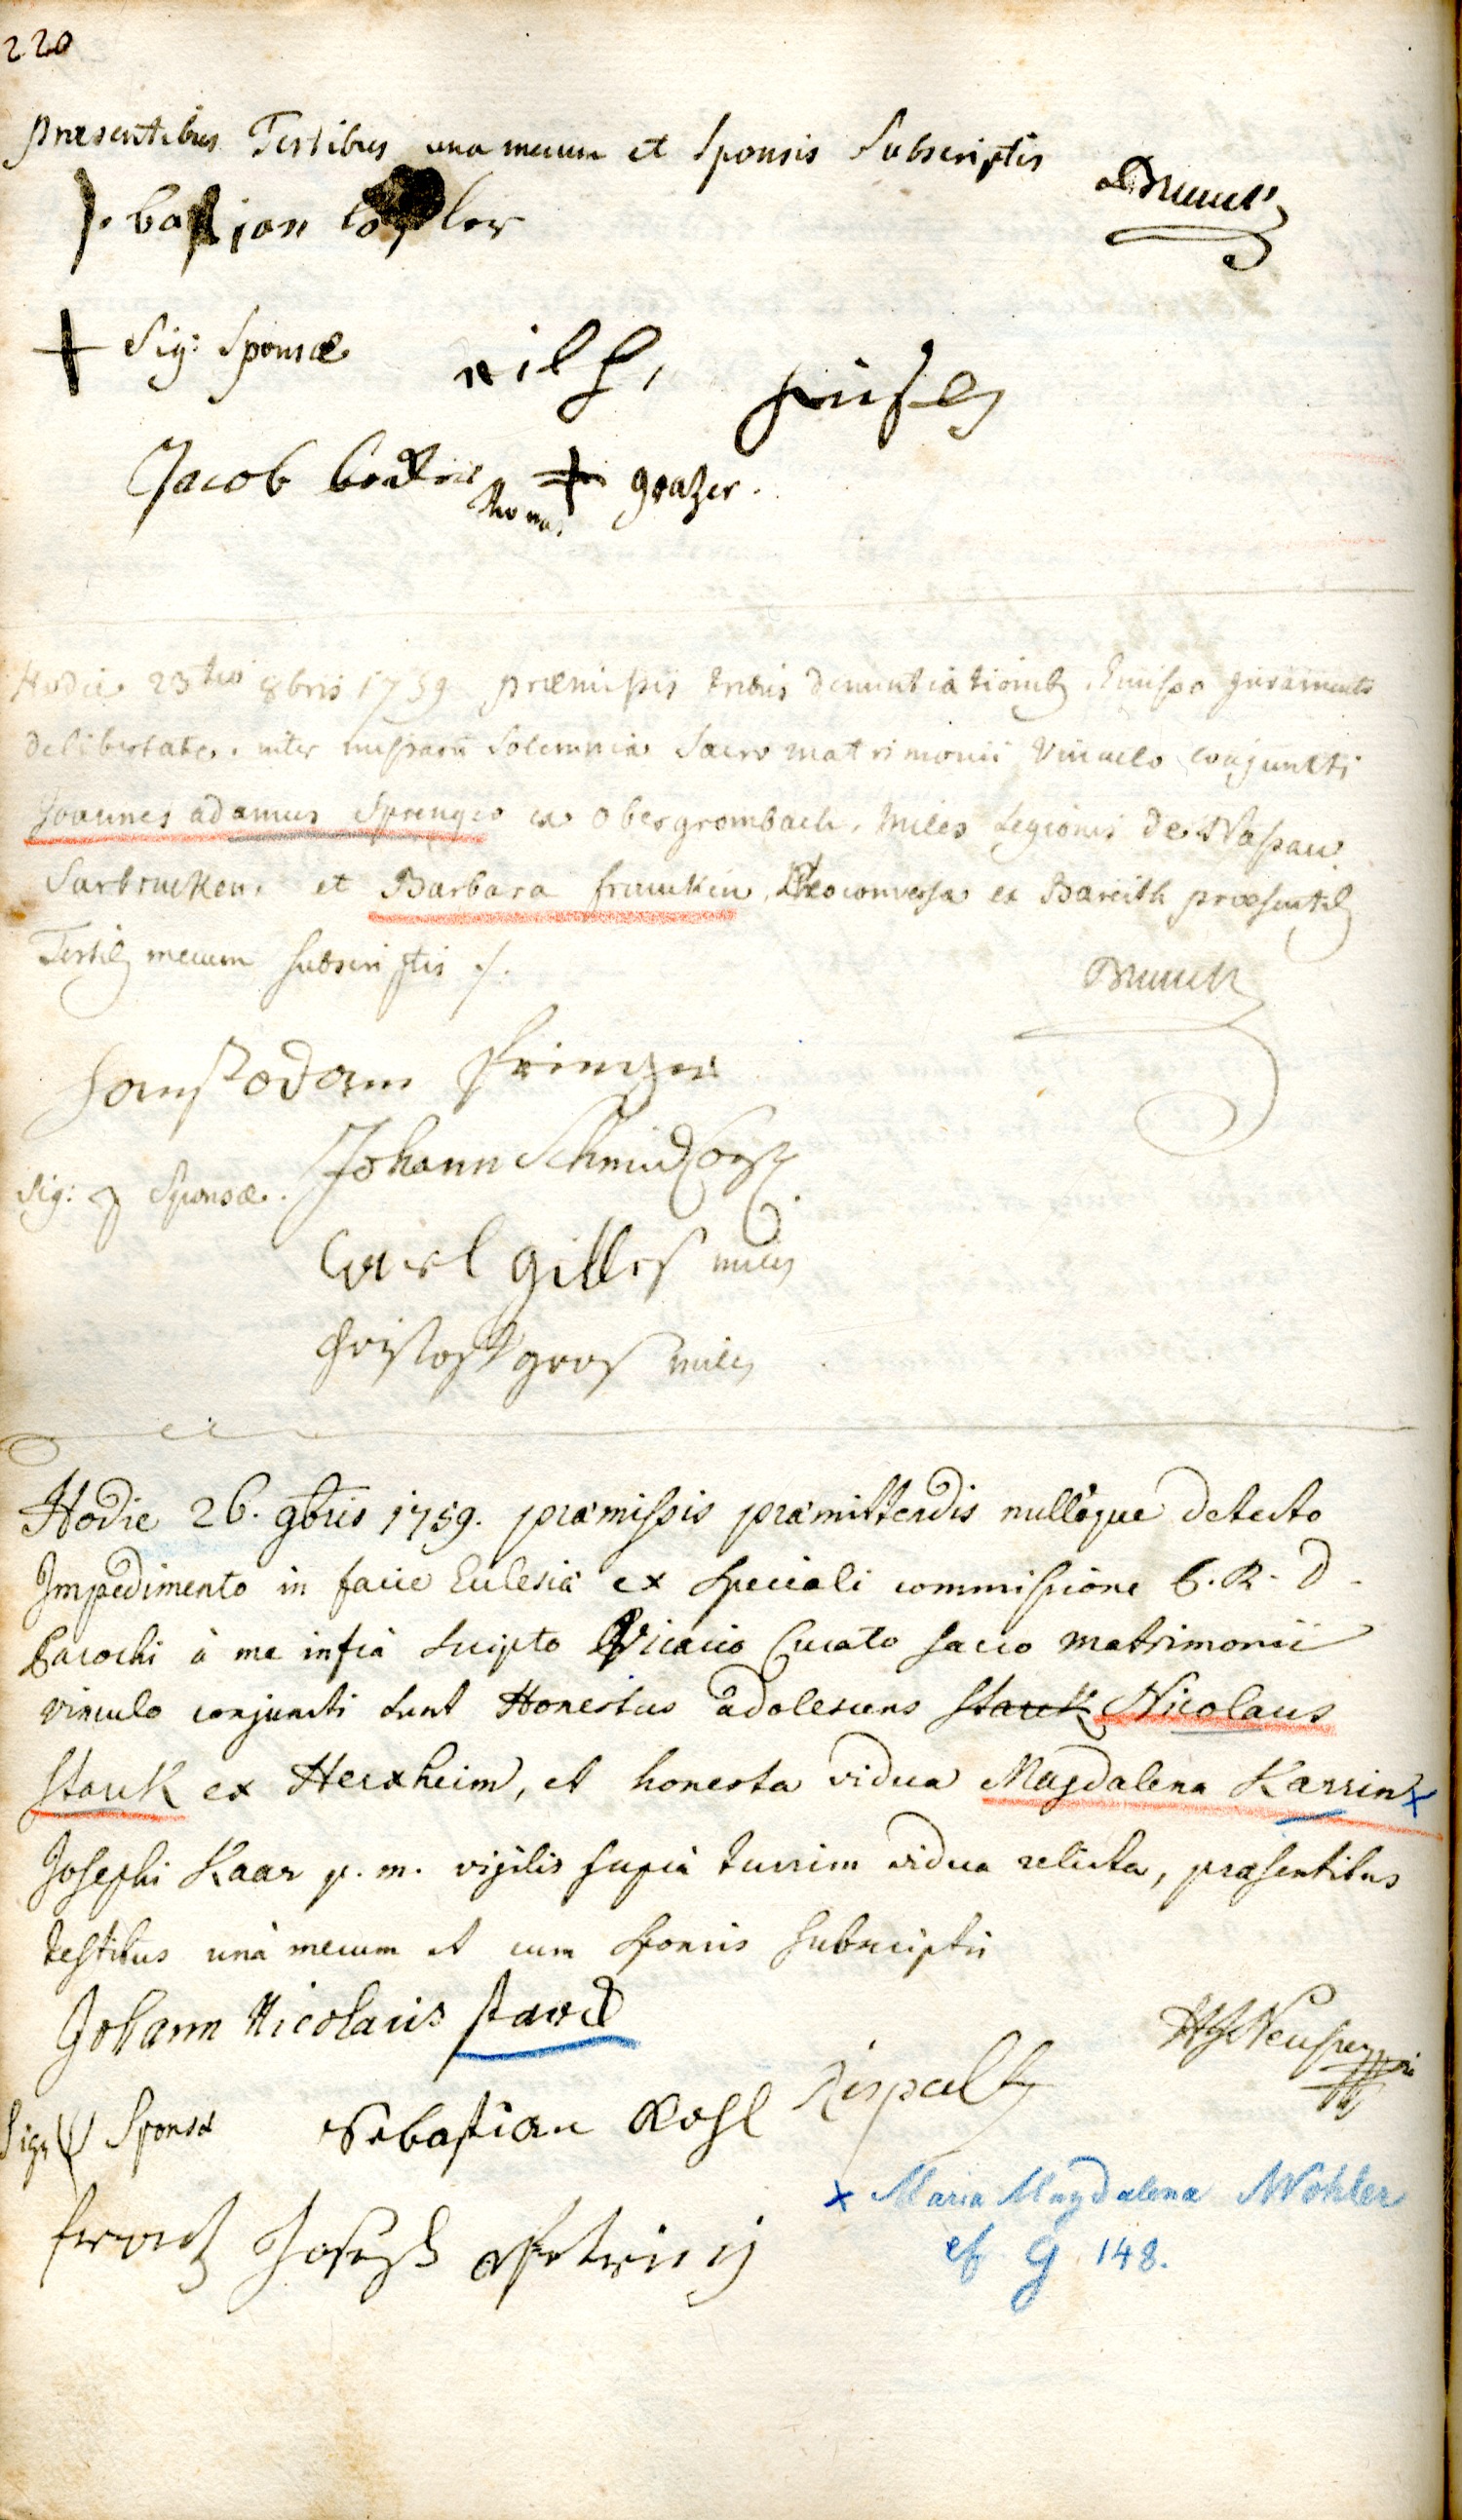 220
præsentibus Testibus una mecum et Sponsis Subscriptis
Sig: Sponsæ
Jacob
Thomas grazer.
Hodie 23tio 8bris 1759 præmissis tribus denuntiationib, Emisso juramento
de libertate, inter missarū Solemnia Sacro matrimonii Vinculo conjuncti
Joannes adamus Sprenger ex Obergrombach, miles Legionis de Nassau
Sarbrucken, et Barbara franckin, Neoconversa ex Bareith præsentib
Testib mecum subscriptis ./.
Hanß adam
Johann Schmid
Sig: Sponsæ.
Carl Gilleß miles
Christoph groß miles
Hodie 26. 9bris 1759. præmissis præmittendis nullóque detecto
Impedimento in facie Eclesiæ ex speciali commissione R. D.
Parochi à me infrà scripto Vicario Curato sacro matrimonii
vinculo conjuncti sunt Honestus adolescens Starck Nicolaus
Starck ex Herxheim, et honesta vidua Magdalena Karrin x
Josephi Kaar p. m. vigilis suprà turrim vidua relicta, præsentibus
testibus unà mecum et cum sponsis subscriptis
Johann Nicolaus starck
Sign Sponsæ Sebastian
x Maria Magdalena Wohler
cf g 148.
frantz Joseph